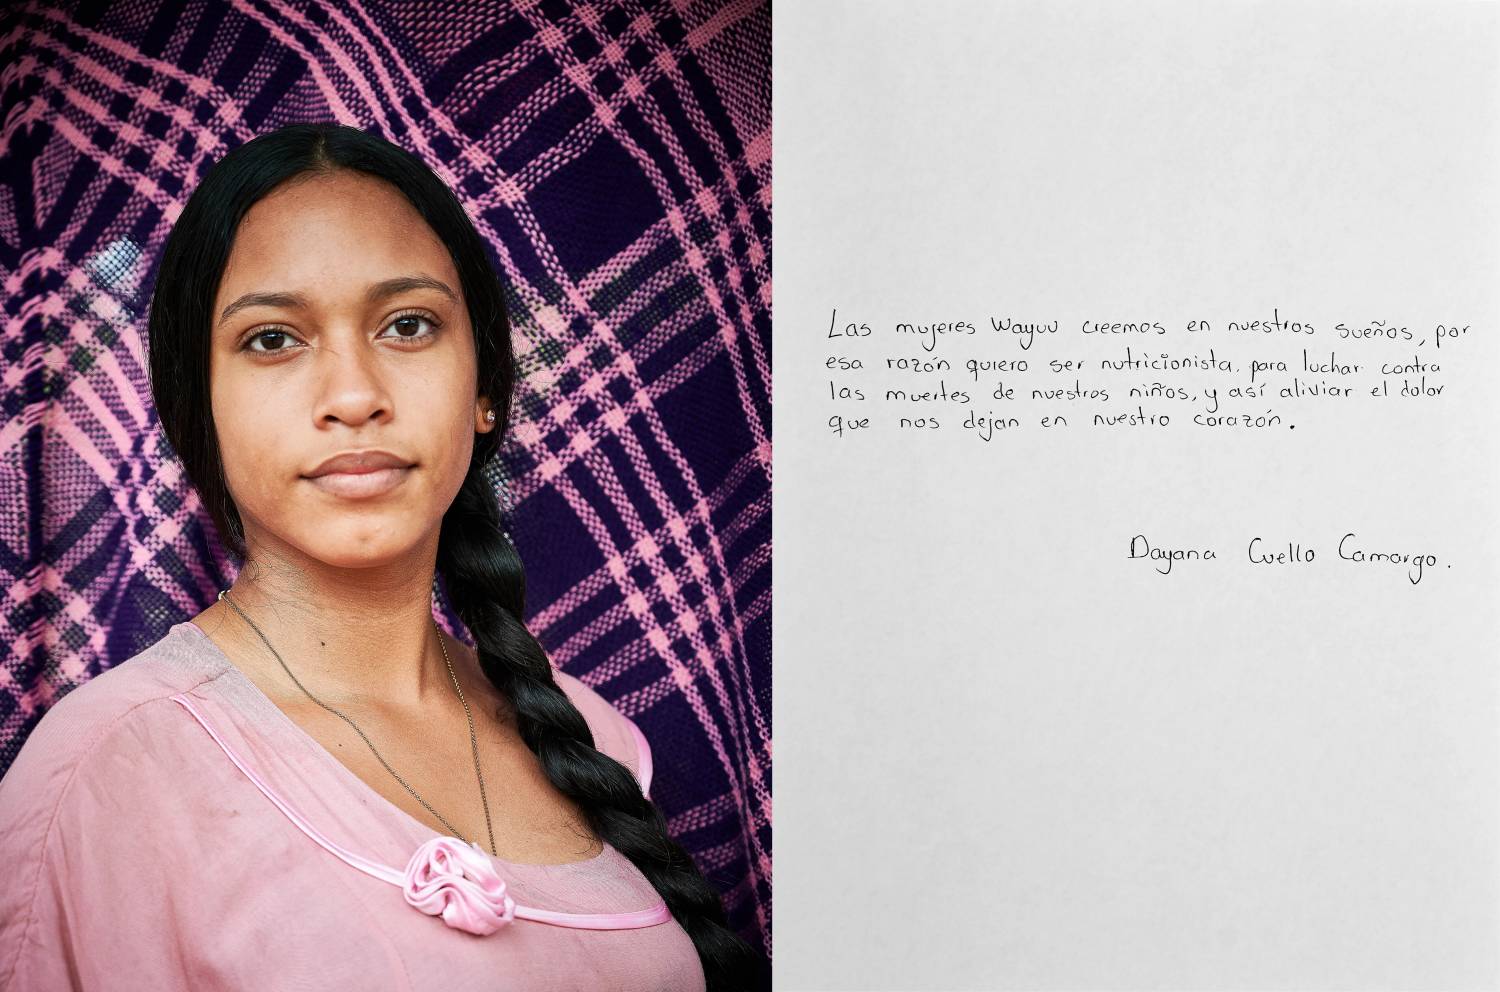 Las mujeres Wayuu creemos en nuestros sueños, por
esa razón quiero ser nutricionista. para luchar contra
las muertes de nuestros niños, y así aliviar el dolor
que nos dejan en nuestro corazón.
Dayana Cuello Camargo.